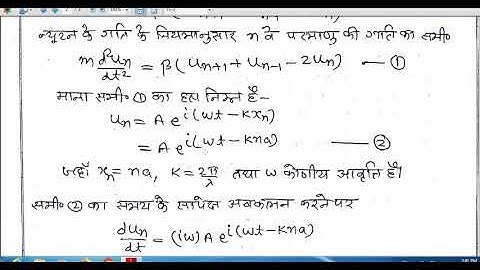 न्यूटन के गति के नियमानुसार n वे परमाणु की गति का समी०
m d²uₙ/dt² = β(uₙ₊₁ + uₙ₋₁ - 2uₙ) — ①
माना समी० ① का हल निम्न है-
uₙ = A e^{i(ωt - Kxₙ)}
= A e^{i(ωt - Kna)} — ②
जहाँ xₙ = na, K = 2π/λ तथा ω कोणीय आवृति है।
समी० ② का समय के सापेक्ष अवकलन करने पर
duₙ/dt = (iω) A e^{i(ωt - Kna)}